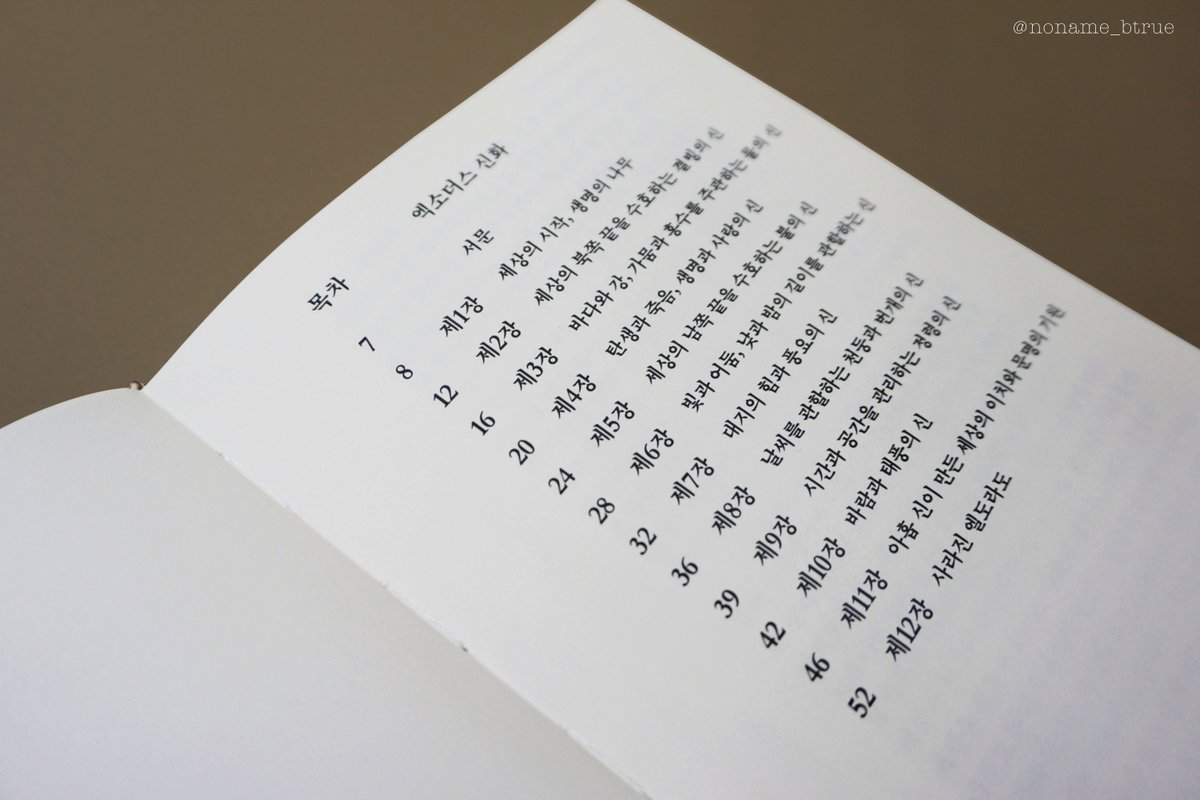 @noname_btrue
목차
엑소더스 신화
7 서문
8 제1장 세상의 시작, 생명의 나무
12 제2장 세상의 북쪽 끝을 수호하는 결빙의 신
16 제3장 바다와 강, 가뭄과 홍수를 주관하는 물의 신
20 제4장 탄생과 죽음, 생명과 사랑의 신
24 제5장 세상의 남쪽 끝을 수호하는 불의 신
28 제6장 빛과 어둠, 낮과 밤의 길이를 관할하는 신
32 제7장 대지의 힘과 풍요의 신
36 제8장 날씨를 관할하는 천둥과 번개의 신
39 제9장 시간과 공간을 관리하는 정령의 신
42 제10장 바람과 태풍의 신
46 제11장 아홉 신이 만든 세상의 이치와 문명의 기원
52 제12장 사라진 엘도라도